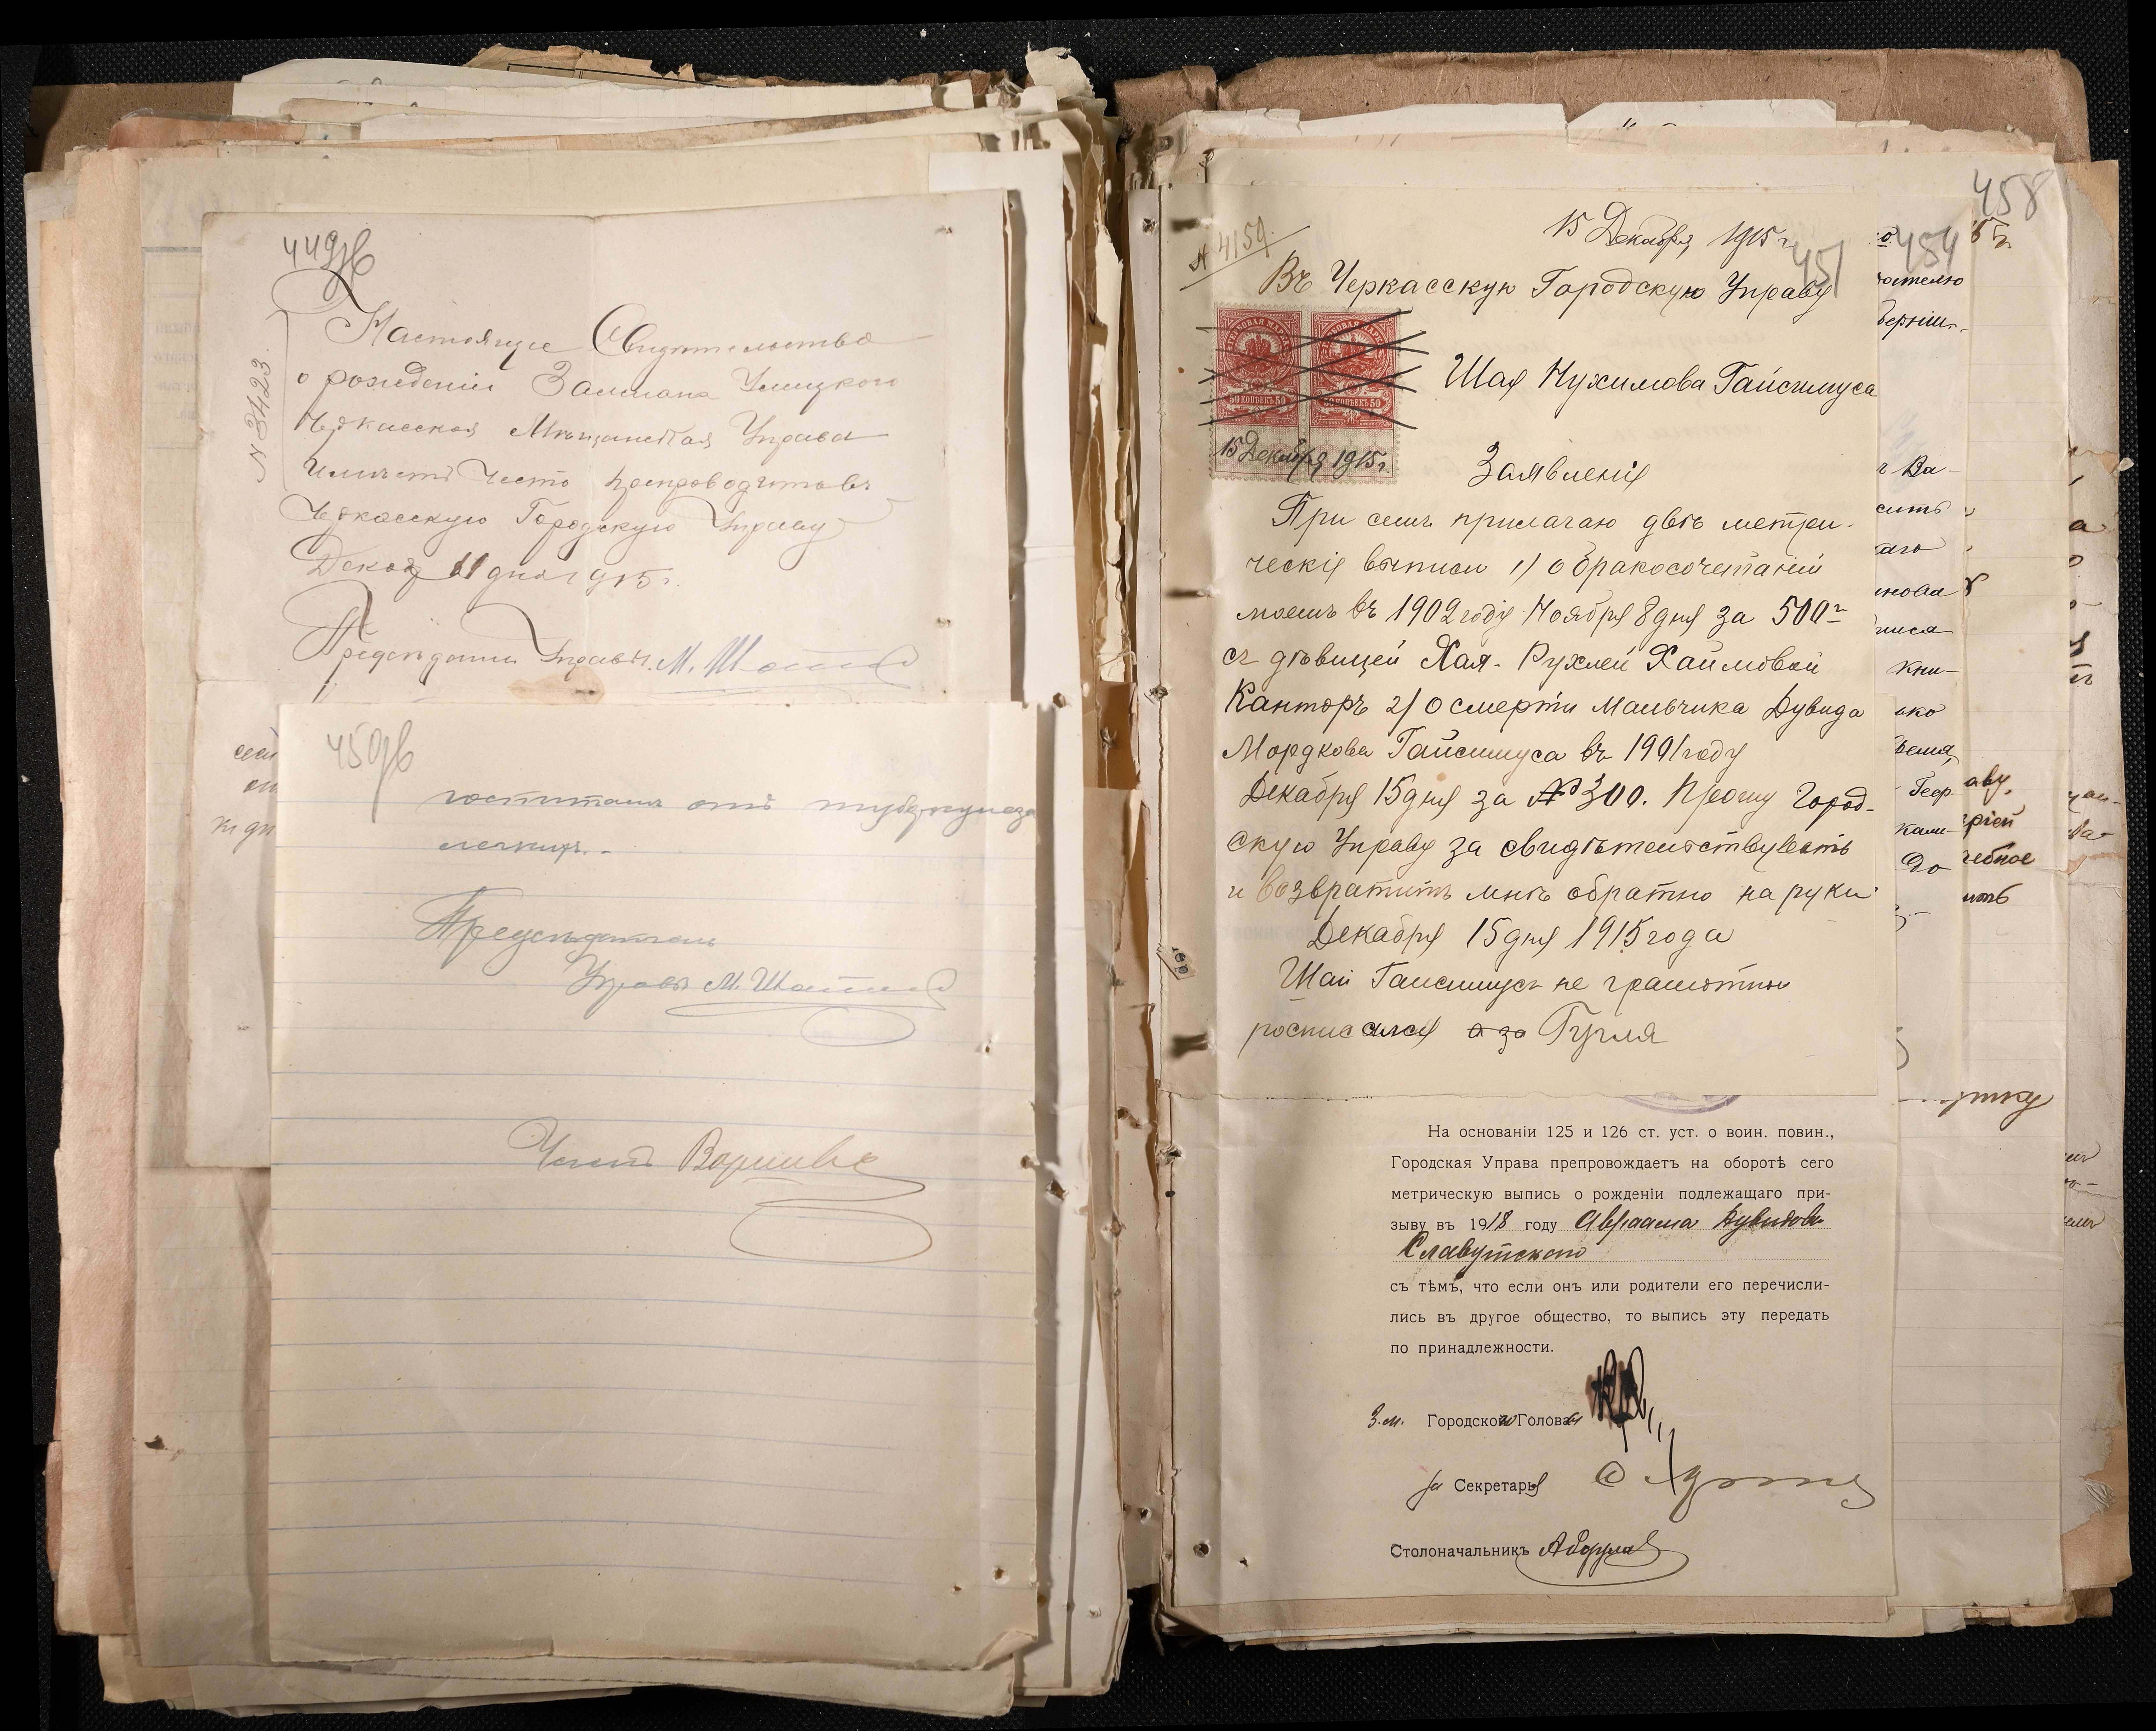 449об
N 3423.
Настоящее Свидѣтельство
о рожденіи Залмана Улицкого
Черкасская Мѣщанская Управа
имѣетъ честь препроводить въ
Черкасскую Городскую Управу
Декаб 11 дня 1915 г.
Предсѣдатель Управы. М.
450об
госпиталь отъ туберкулеза
легкихъ.-
Предсѣдатель
Управы М.
Членъ
458
454
451
N 4159.
15 Декабря 1915 г.
Въ Черкасскую Городскую Управу
50 КОПѢЕКЪ 50
50 КОПѢЕКЪ 50
15 Декабря 1915 г.
Шая Нухимова Гайсинуса
Заявленія
При семъ прилагаю двѣ метри-
ческія выписи 1/ о бракосочетаніи
моемъ въ 1902 годя Ноября 8 дня за 500-
съ дѣвицей Хая-Рухлей Хаимовой
Канторъ 2/ о смерти мальчика Дувида
Мордкова Гайсинуса въ 1901 году
Декабря 15 дня за № 300. Прошу Город-
скую Управу за свидѣтелствувать
и возвратить мнѣ обратно на руки
Декабря 15 дня 1915 года
Шая Гайсинусъ не грамотны
росписался а за
На основаніи 125 и 126 ст. уст. о воин. повин.,
Городская Управа препровождаетъ на оборотѣ сего
метрическую выпись о рожденіи подлежащаго при-
зыву въ 1918 году Авраама Дувидова
Славутского
съ тѣмъ, что если онъ или родители его перечисли-
лись въ другое общество, то выпись эту передать
по принадлежности.
З.м. Городского Головы
за Секретаря
Столоначальникъ